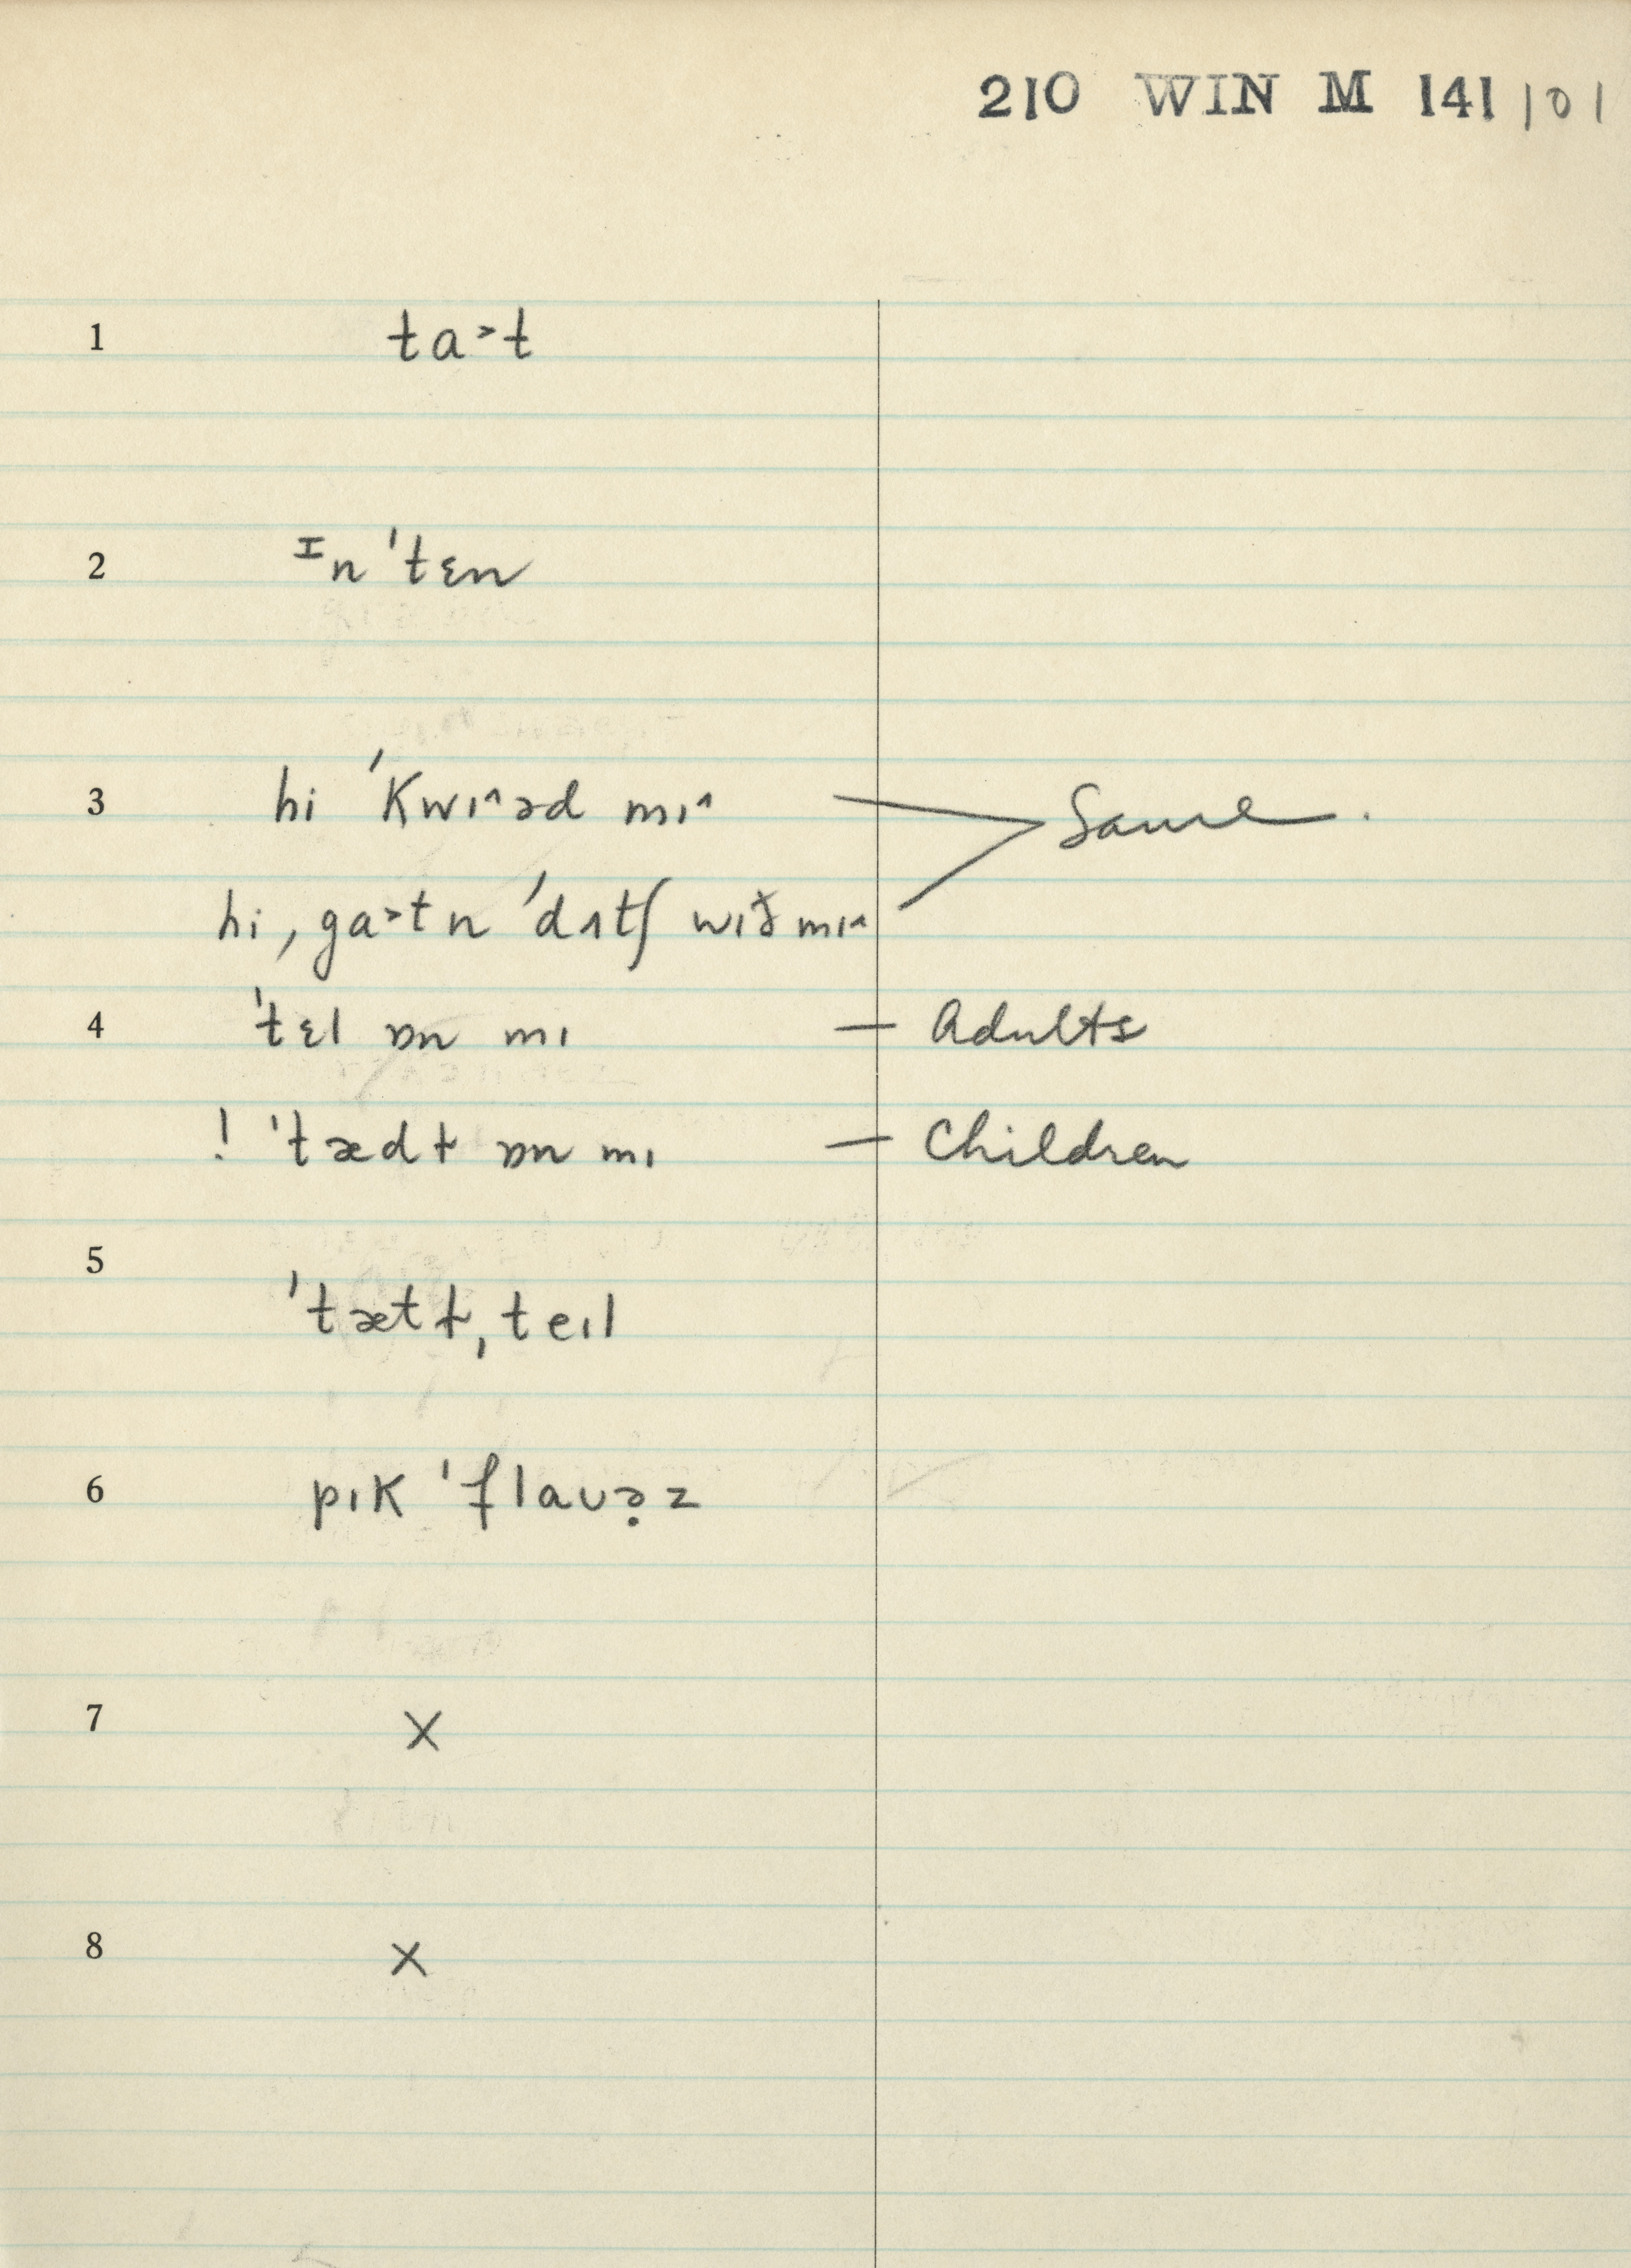 210 WIN M 141 101
1 ta˃t
2 ᴵn ˈtɛn
3 hi ˈkwɪ^əd mɪ^
Same.
hi ˌga˃tn ˈdʌtʃ wɪð mɪ^
4 ˈtɛl ɒn mɪ — Adults
! ˈtædɫ ɒn mɪ — Children
5 ˈtætɫˌteɪl
6 pɪk ˈflaʊə̣z
7 X
8 X